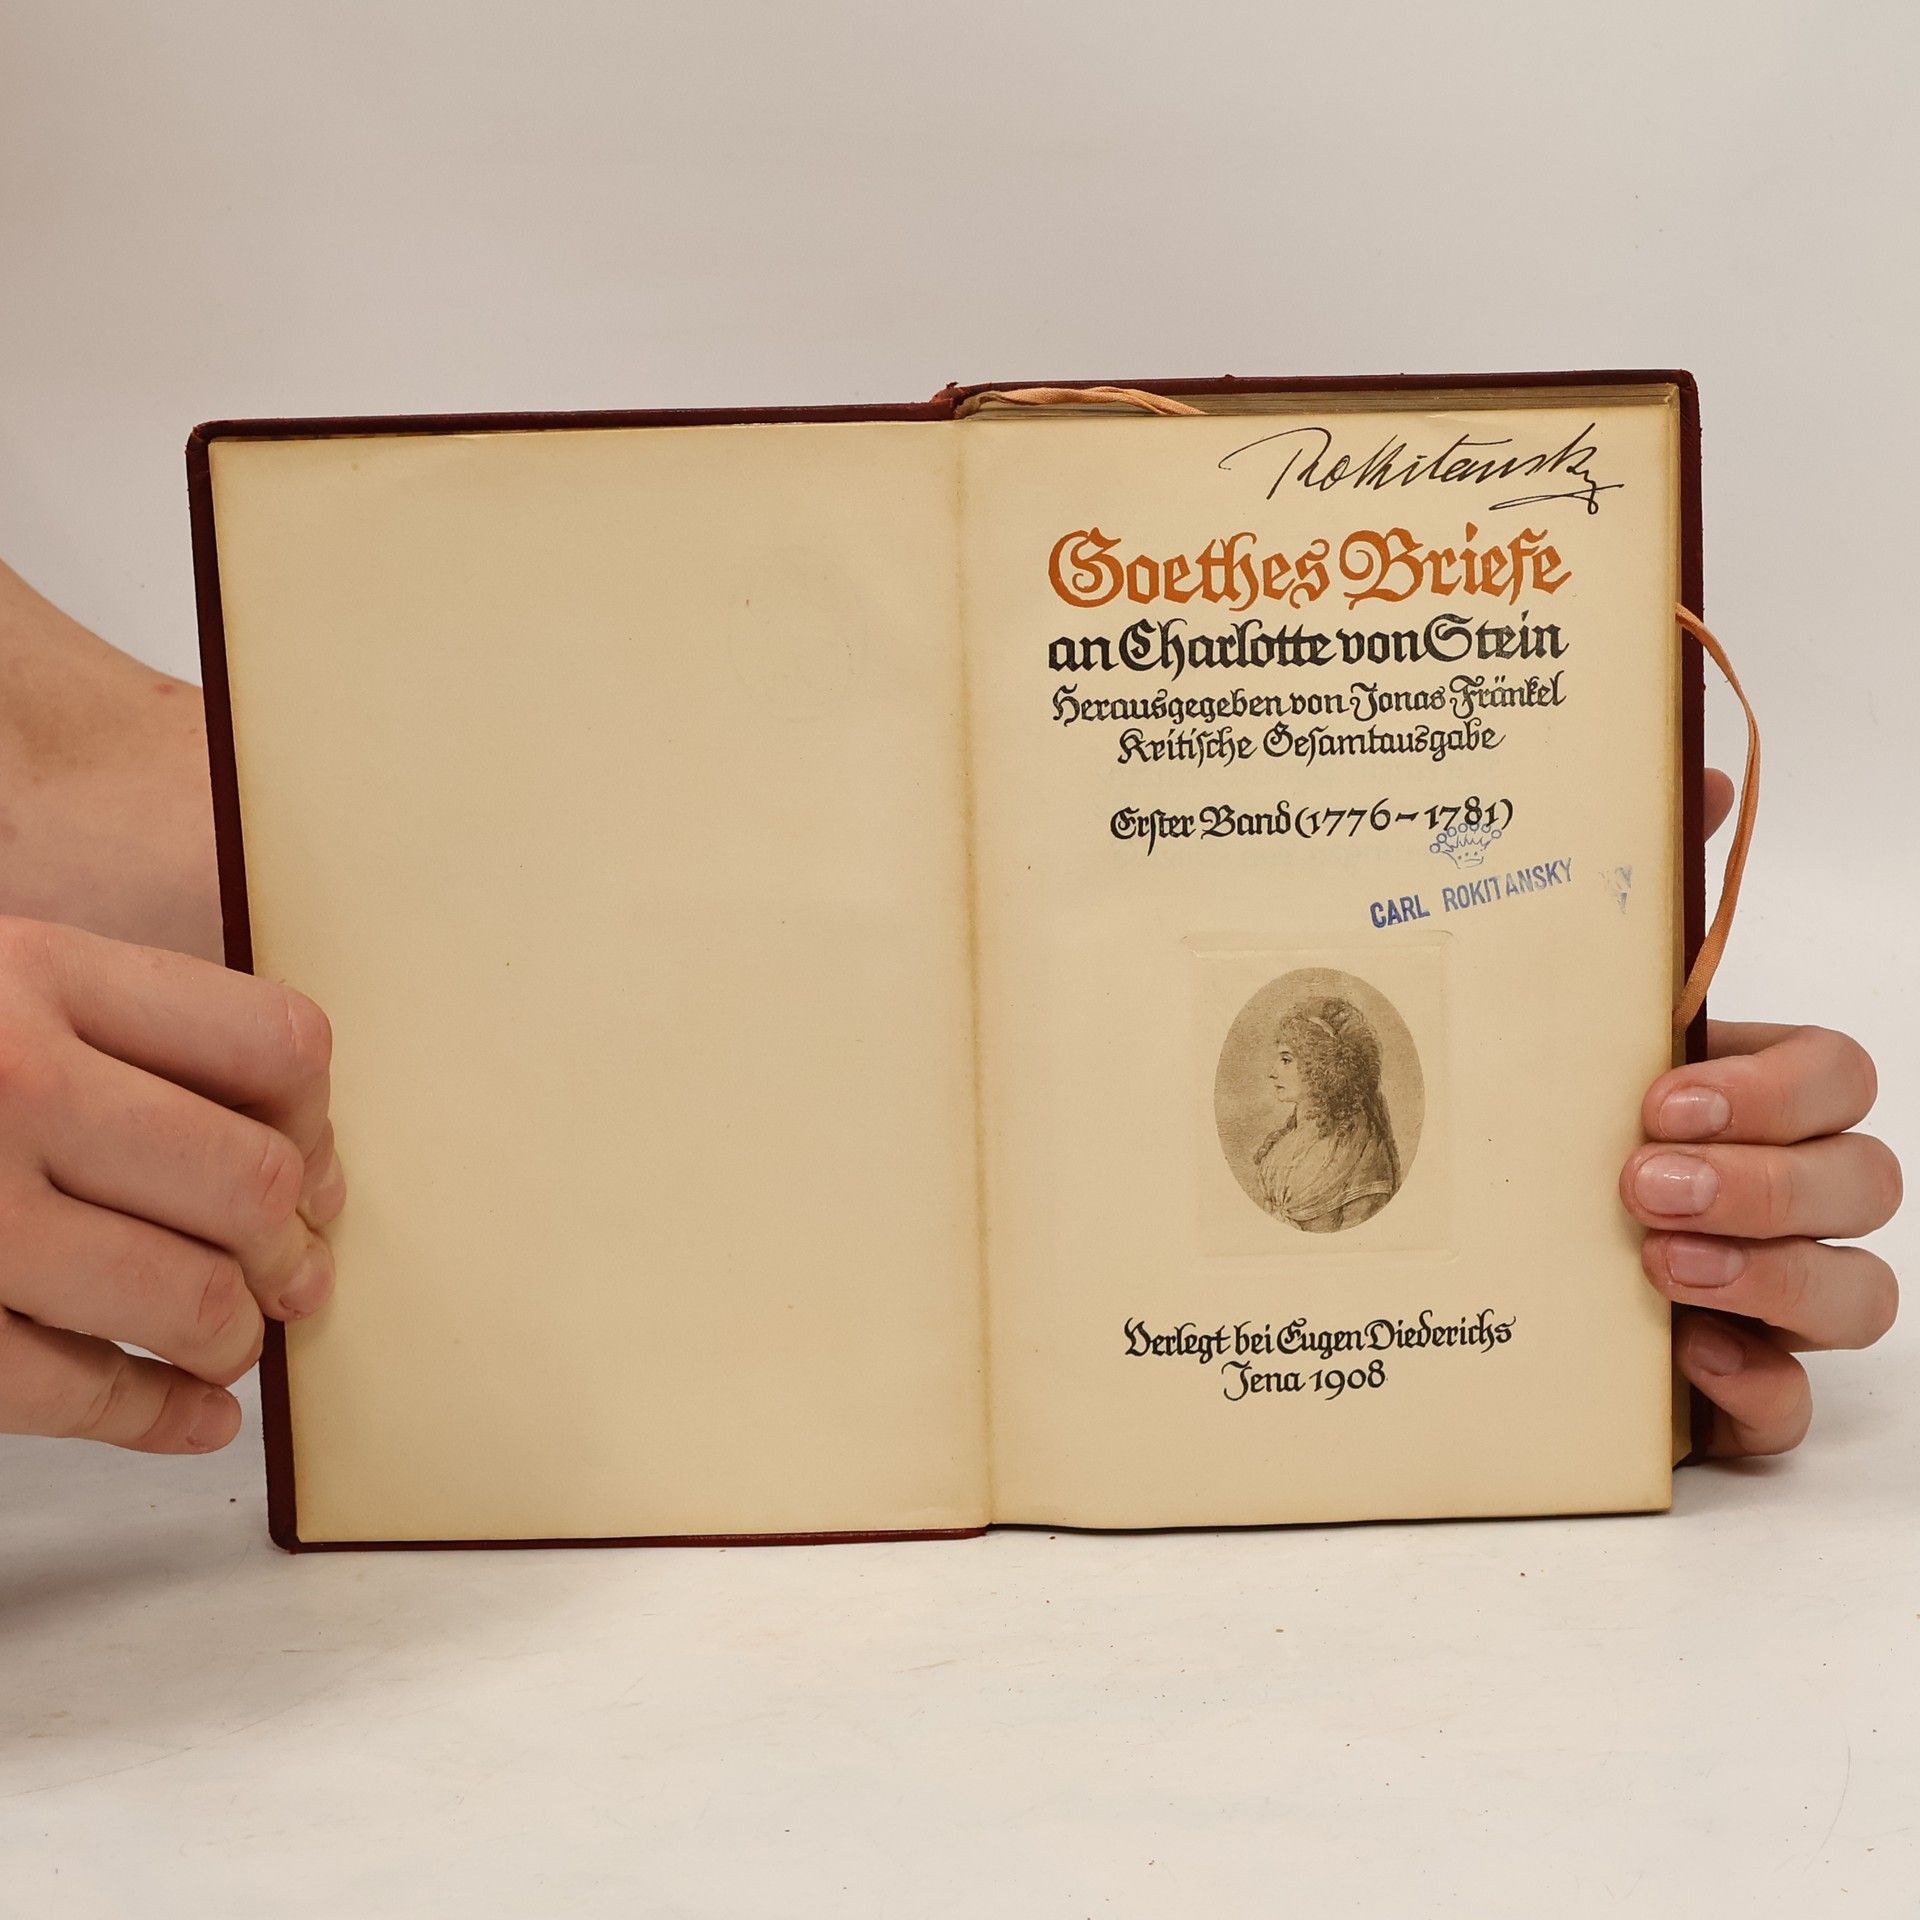 Rokitansky
Goethes Briefe
an Charlotte von Stein
Herausgegeben von Jonas Fränkel
Kritische Gesamtausgabe
Erster Band (1776-1781)
CARL ROKITANSKY
KY
Verlegt bei Eugen Diederichs
Jena 1908